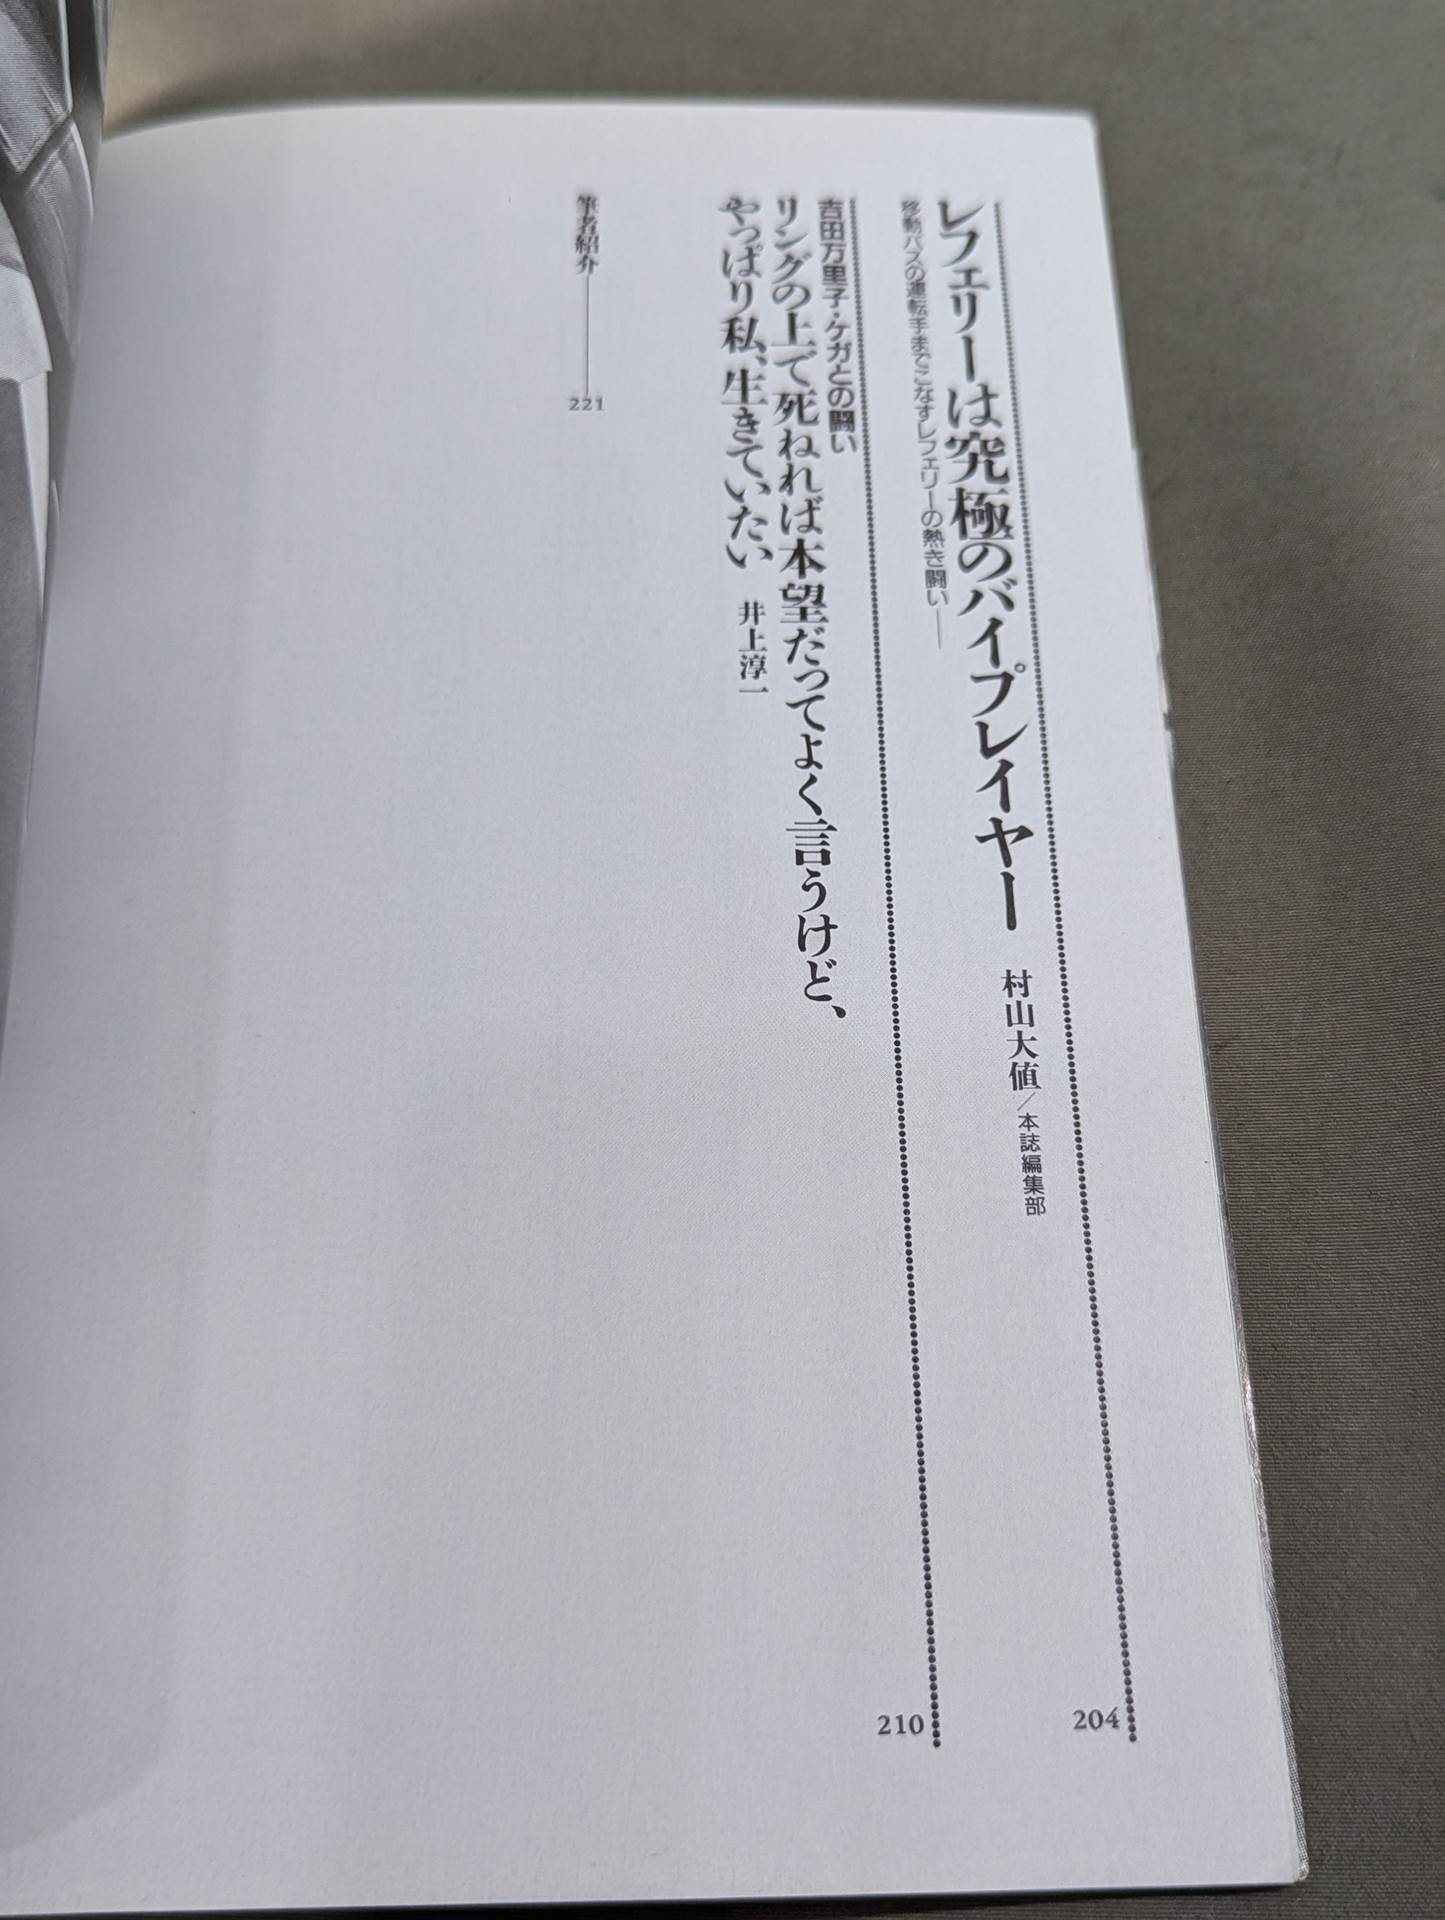 レフェリーは究極のバイプレイヤー 村山大値／本誌編集部
204
移動バスの運転手までこなすレフェリーの熱き闘い――
吉田万里子・ケガとの闘い
210
リングの上で死ねれば本望だってよく言うけど、
やっぱり私、生きていたい 井上淳一
筆者紹介――――221